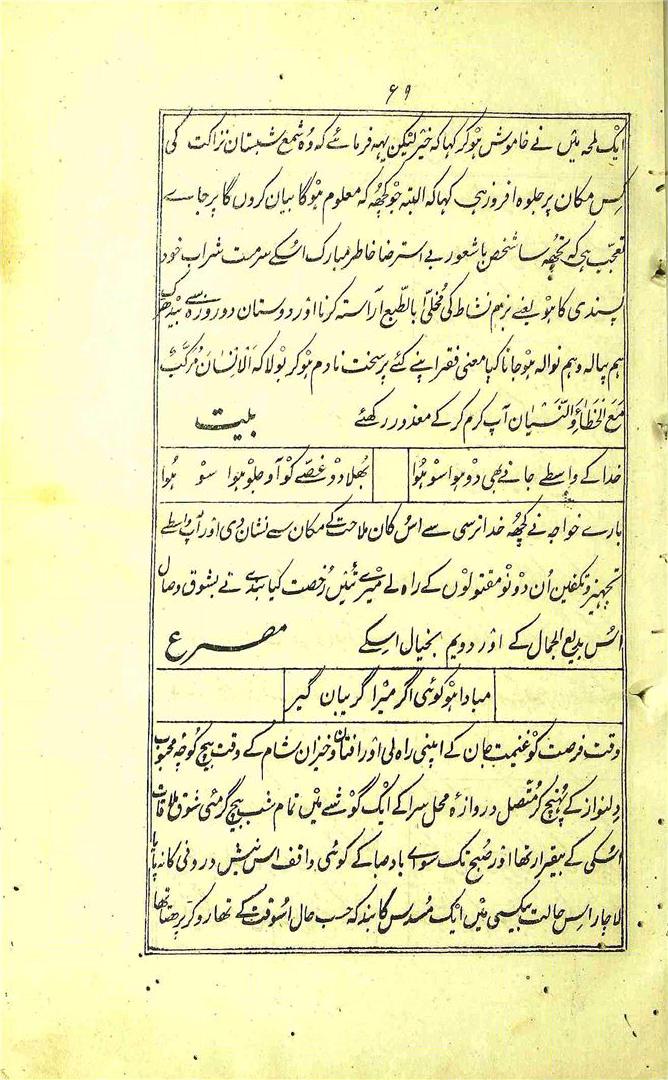 ۶۹
ایک لمحہ میں نے خاموش ہو کر کہا کہ خیر لیکن یہہ فرمائے کہ وُہ شمع شبستان نزاکت کی
کِس مکان پر جلوہ افروز ہی کہا کہ البتہ جو کچھہ کہ معلوم ہو گا بیان کروں گا پر جاے
تعجب ہی کہ تجھہ سا شخص باشعور بے استرضا خاطر مبارک اُسکے سرمست شراب خود
پسندی کا ہو یعنے بزم نشاط کی مُخلّی بالطّبع آراستہ کرنا اور دوستان دوروزہ سے بیدھرک
ہم پیالہ و ہم نوالہ ہو جانا کیا معنی فقیر اپنے کئے پر سخت نادم ہو کر بولا کہ اَلاِنسَان مُرَکَّبٌ
مَعَ الخَطَاءِ وَالنِّسْیَان آپ کرم کر کے معذور رکھئے بیت
خدا کے واسطے جانے بھی دو ہوا سو ہُوا بُھلا دو غصّے کو آو چلو ہوا سو ہُوا
بارے خواجہ نے کچھُہ خدا ترسی سے اُس کان ملاحت کے مکان سے نشان دی اور آپ واسطے
تجہیز و تکفین اُن دونو مقتولوں کے راہ لے میرے تئیں رُخصت کیا بندے نے بشوق وصال
اُس بدیع الجمال کے اور دویم بخیال اِسکے مصرع
مبادا ہو کوئی اگر میرا گریبان گیر
وقت فرصت کو غنیمت جان کے اپنی راہ لی اور افتان و خیزان شام کے وقت بیچ کُوچہ محبوب
دلنواز کے پُہنچ کر مُتّصل دروازہ محل سرا کے ایک گوشے میں تمام شب بیچ گرمئی شوق ملاقات
اُسکی کے بیقرار تھا اور صُبح تک سواے باد صبا کے کوئی واقف اس تپش درونی کا نہ پایا
لاچار اِس حالت بیکسی میں ایک مُسدس کا بند کہ حسب حال اُسوقت کے تھا رو کر پڑھتا تھا